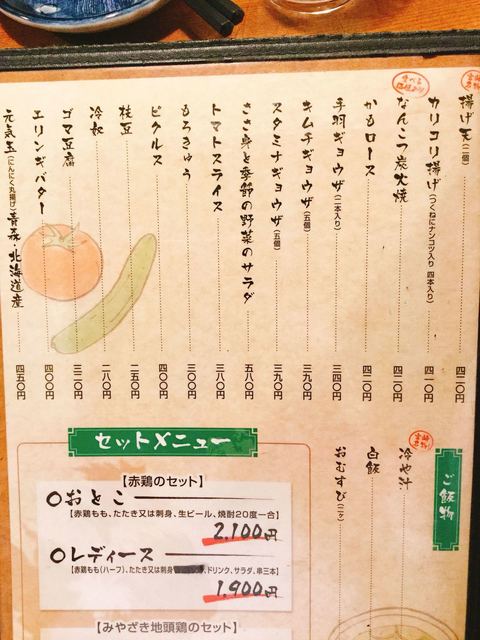 揚げ天(二個) 四二〇円
カリコリ揚げ(つくねにナンコツ入り 四本入り) 四一〇円
なんこつ炭火焼 四二〇円
かもロース 四二〇円
手羽ギョウザ(二本入り) 三四〇円
キムチギョウザ(五個) 三九〇円
スタミナギョウザ(五個) 三九〇円
ささ身と季節の野菜のサラダ 五八〇円
トマトスライス 三八〇円
もろきゅう 三〇〇円
ピクルス 四〇〇円
枝豆 二五〇円
冷奴 二八〇円
ゴマ豆腐 三二〇円
エリンギバター 四〇〇円
元気玉(にんにく丸揚げ)青森・北海道産 四五〇円
ご飯物
冷や汁
白飯
おむすび(二ケ)
セットメニュー
【赤鶏のセット】
〇おとこ
【赤鶏もも、たたき又は刺身、生ビール、焼酎20度一合】
2,100円
〇レディース
【赤鶏もも(ハーフ)、たたき又は刺身 ドリンク、サラダ、串三本】
1,900円
【みやざき地頭鶏のセット】